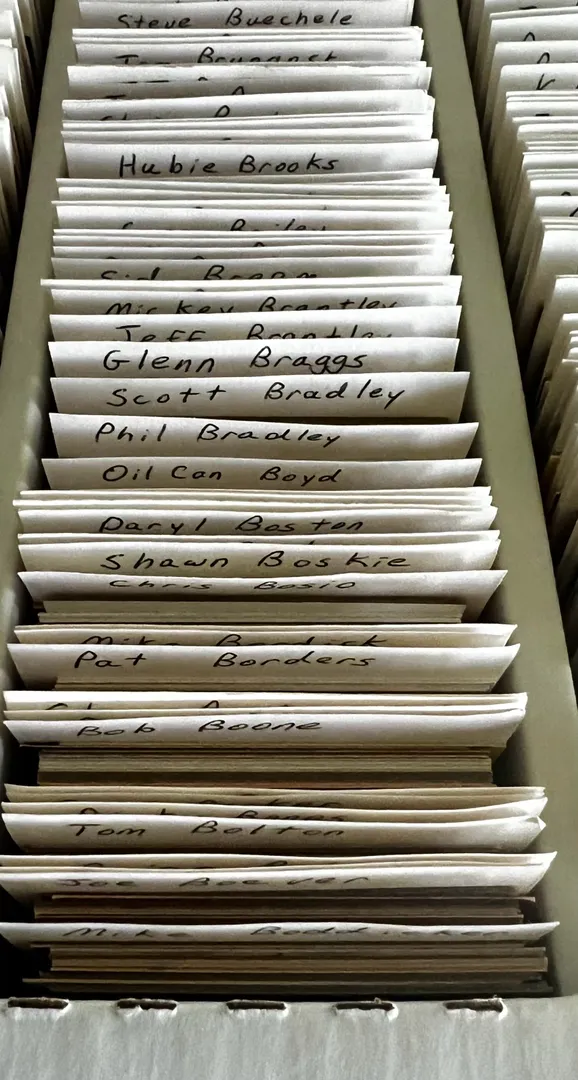 Steve Buechele
Tom Brunansky
Hubie Brooks
Sid Bream
Mickey Brantley
Jeff Brantley
Glenn Braggs
Scott Bradley
Phil Bradley
Oil Can Boyd
Daryl Boston
Shawn Boskie
Chris Bosio
Mike Bordick
Pat Borders
Bob Boone
Tom Bolton
Joe Boever
Mike Boddicker